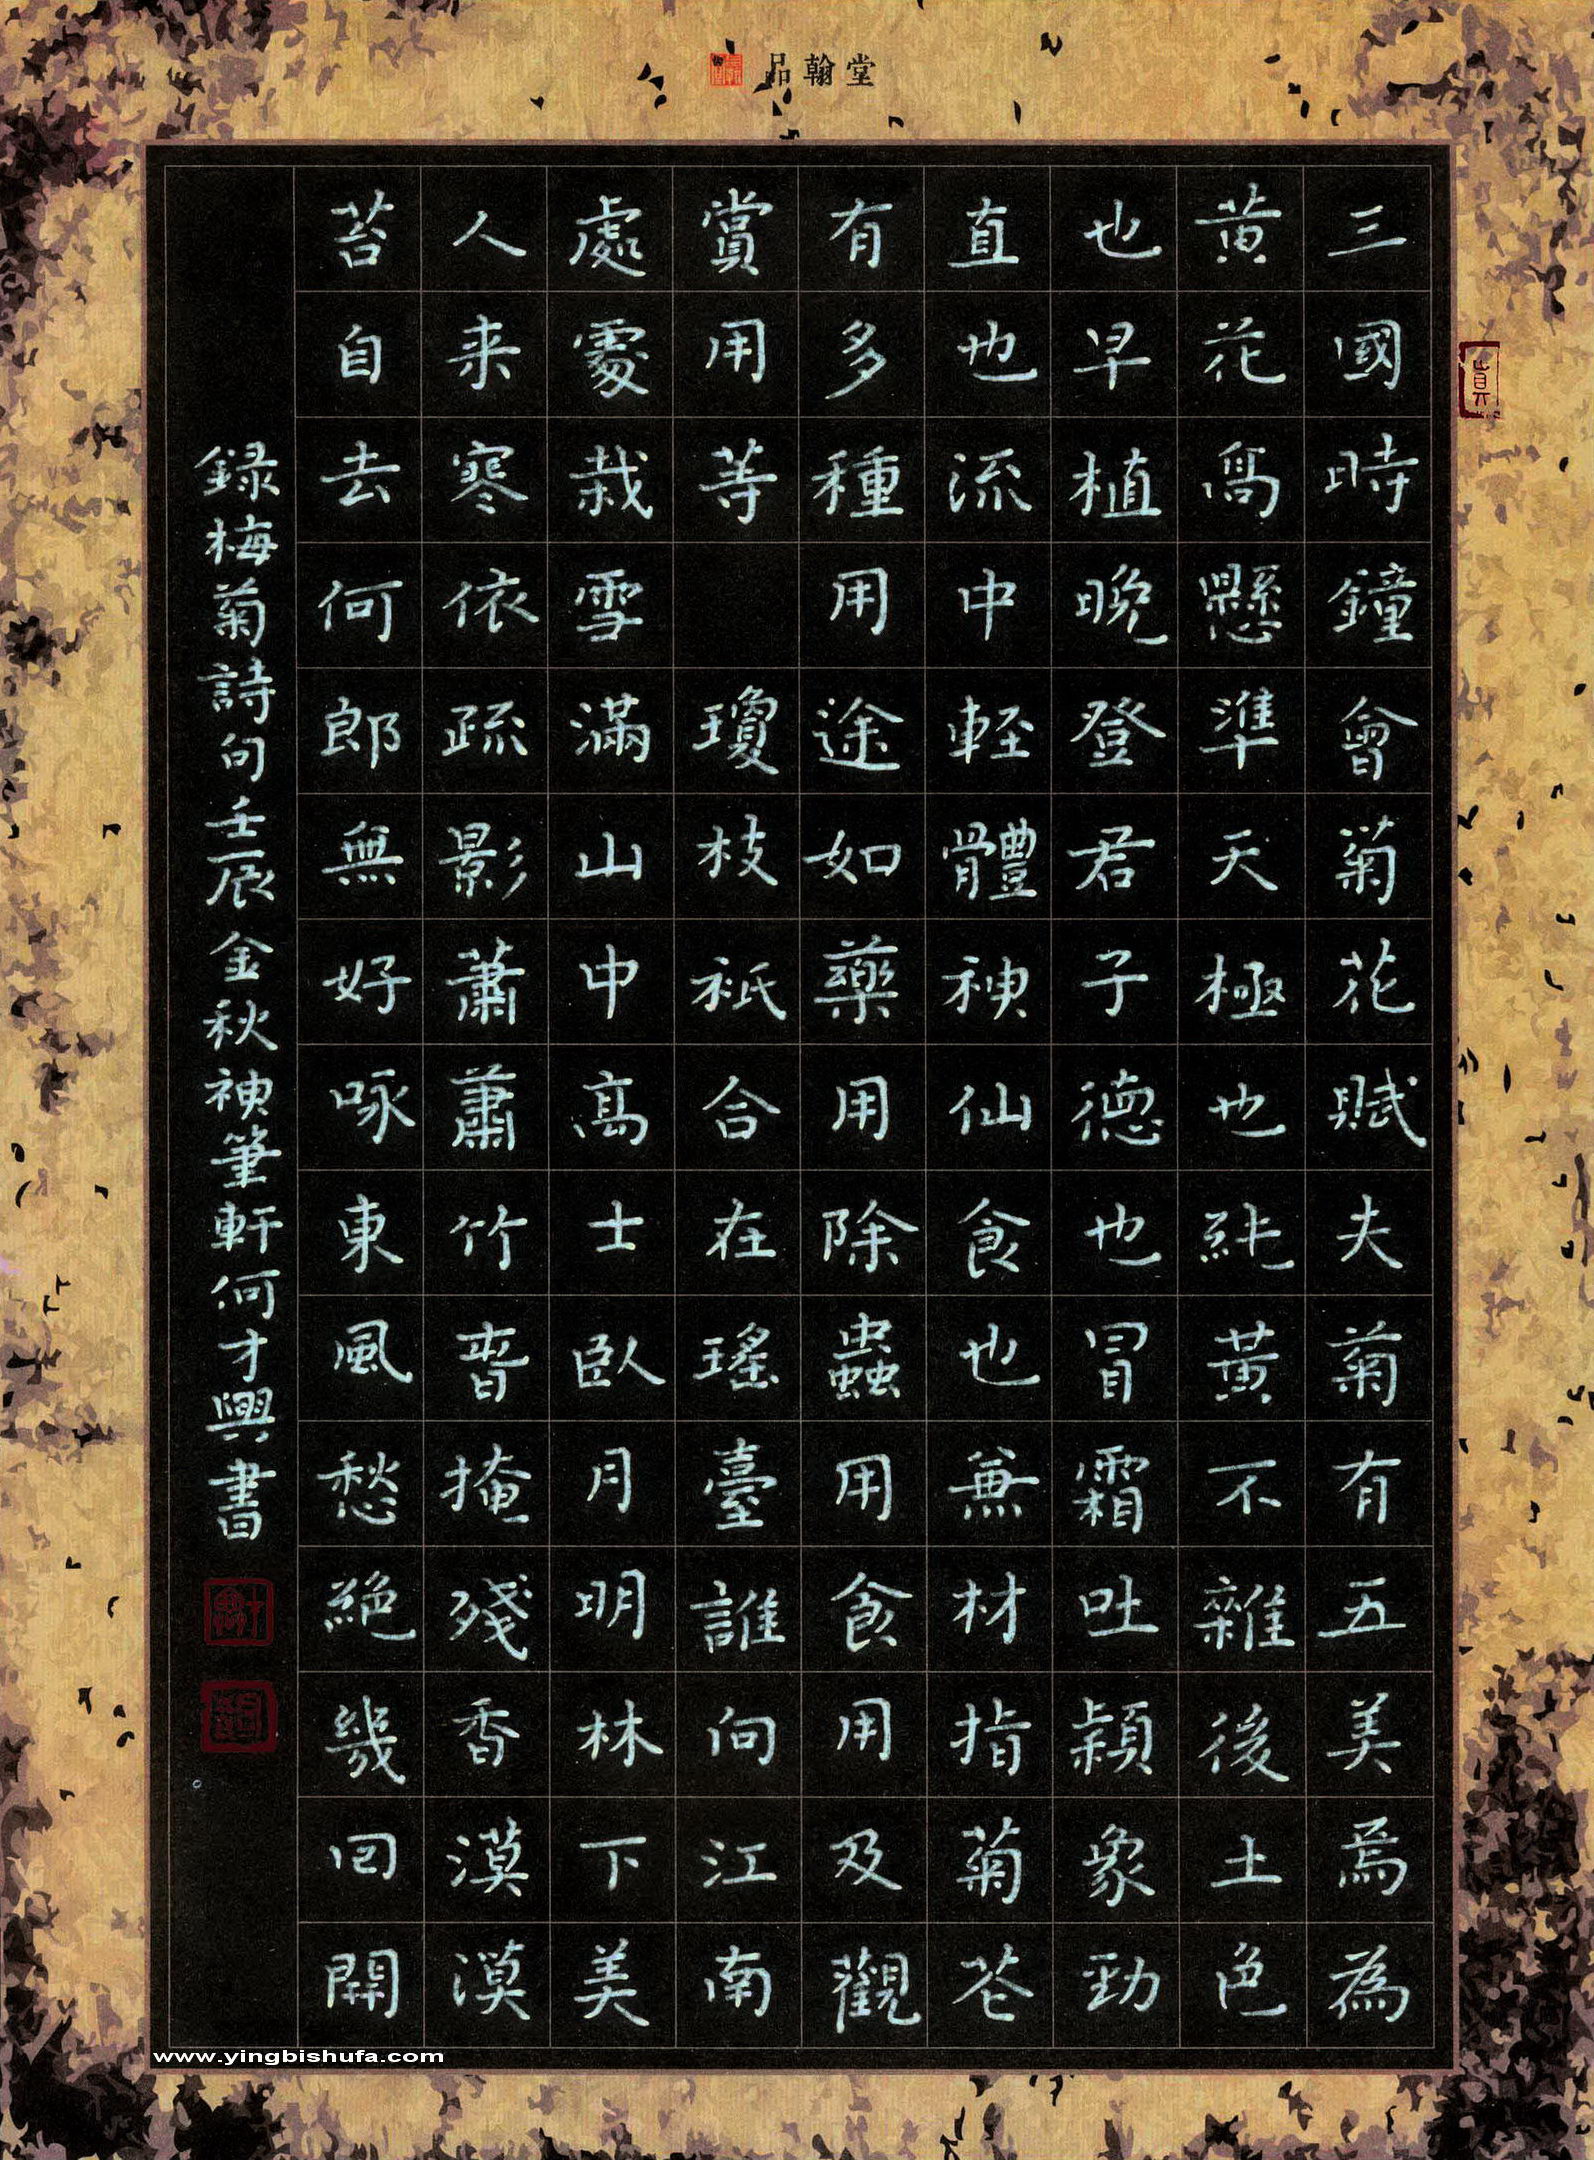 品翰堂
三國時鐘會菊花賦夫菊有五美焉為
黃花高懸準天極也純黃不雜後土色
也早植晚登君子德也冒霜吐穎象勁
直也流中輕體神仙食也無材指菊花
有多種用途如藥用除蟲用食用及觀
賞用等 瓊枝祇合在瑤臺誰向江南
處處栽雪滿山中高士臥月明林下美
人来寒依疏影蕭蕭竹春掩殘香漠漠
苔自去何郎無好咏東風愁絕幾回開
録梅菊詩句壬辰金秋神筆軒何才興書
www.yingbishufa.com